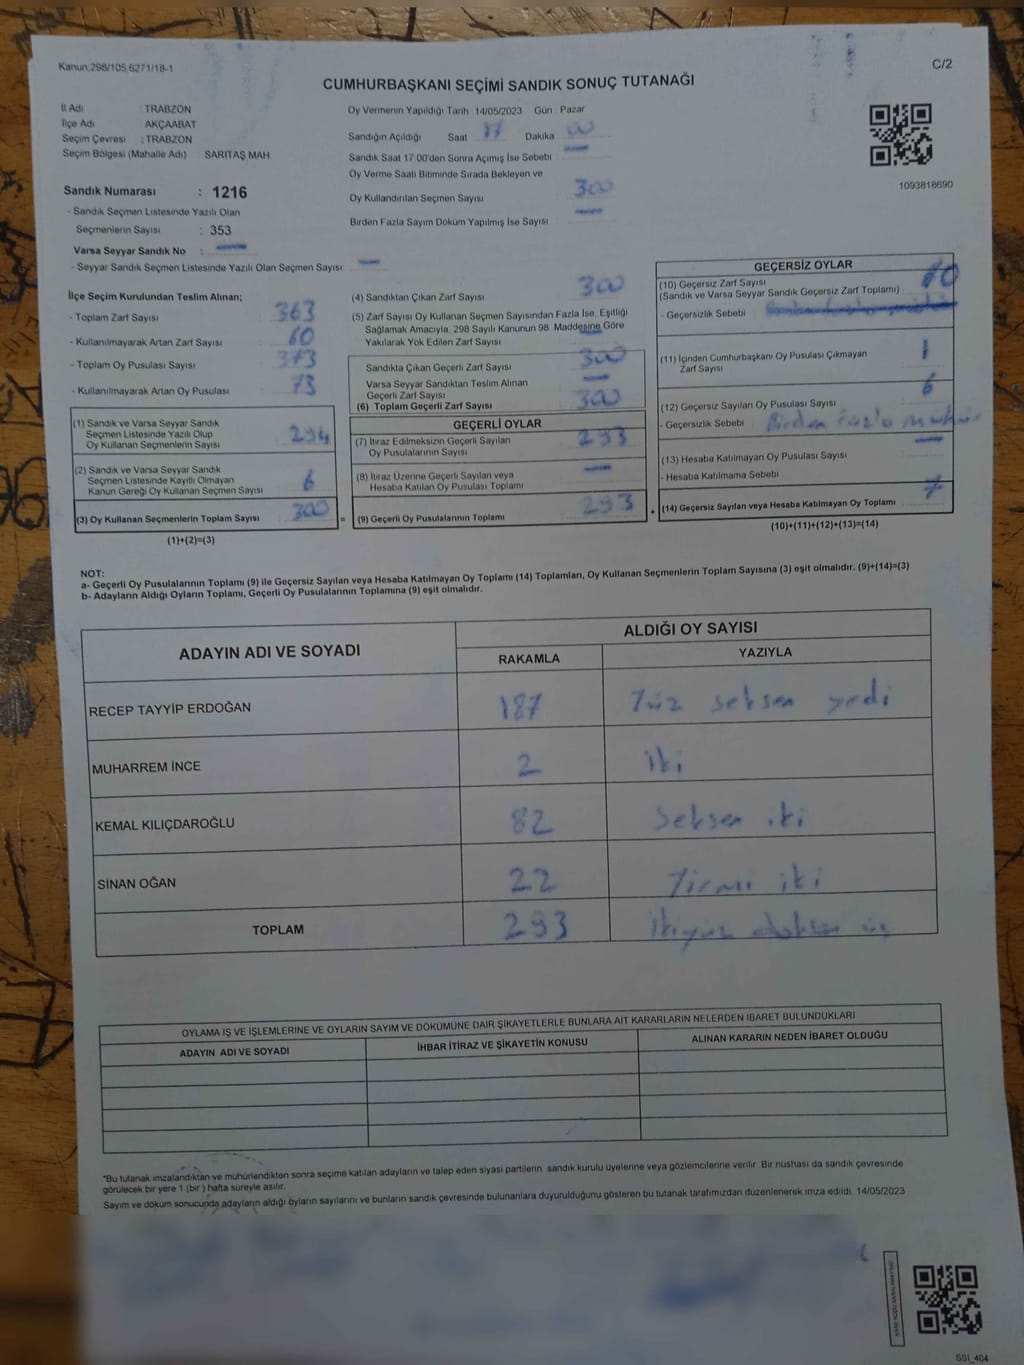 Kanun,298/105,6271/18-1
C/2
CUMHURBAŞKANI SEÇİMİ SANDIK SONUÇ TUTANAĞI
İl Adı : TRABZON
İlçe Adı AKÇAABAT
Seçim Çevresi : TRABZON
Seçim Bölgesi (Mahalle Adı) SARITAŞ MAH
Sandık Numarası : 1216
- Sandık Seçmen Listesinde Yazılı Olan
Seçmenlerin Sayısı : 353
Varsa Seyyar Sandık No :
- Seyyar Sandık Seçmen Listesinde Yazılı Olan Seçmen Sayısı
Oy Vermenin Yapıldığı Tarih 14/05/2023 Gün Pazar
Sandığın Açıldığı Saat 17 Dakika 00
Sandık Saat 17.00'den Sonra Açımış İse Sebebi
Oy Verme Saati Bitiminde Sırada Bekleyen ve
Oy Kullandırılan Seçmen Sayısı 300
Birden Fazla Sayım Döküm Yapılmış İse Sayısı
1093818690
İlçe Seçim Kurulundan Teslim Alınan;
- Toplam Zarf Sayısı 363
- Kullanılmayarak Artan Zarf Sayısı 60
- Toplam Oy Pusulası Sayısı 373
- Kullanılmayarak Artan Oy Pusulası 73
(1) Sandık ve Varsa Seyyar Sandık
Seçmen Listesinde Yazılı Olup
Oy Kullanan Seçmenlerin Sayısı 294
(2) Sandık ve Varsa Seyyar Sandık
Seçmen Listesinde Kayıtlı Olmayan
Kanun Gereği Oy Kullanan Seçmen Sayısı 6
(3) Oy Kullanan Seçmenlerin Toplam Sayısı 300 =
(1)+(2)=(3)
(4) Sandıktan Çıkan Zarf Sayısı 300
(5) Zarf Sayısı Oy Kullanan Seçmen Sayısından Fazla İse, Eşitliği
Sağlamak Amacıyla, 298 Sayılı Kanunun 98. Maddesine Göre
Yakılarak Yok Edilen Zarf Sayısı
Sandıkta Çıkan Geçerli Zarf Sayısı 300
Varsa Seyyar Sandıktan Teslim Alınan
Geçerli Zarf Sayısı
(6) Toplam Geçerli Zarf Sayısı 300
GEÇERLİ OYLAR
(7) İtiraz Edilmeksizin Geçerli Sayılan
Oy Pusulalarının Sayısı 293
(8) İtiraz Üzerine Geçerli Sayılan veya
Hesaba Katılan Oy Pusulası Toplamı
(9) Geçerli Oy Pusulalarının Toplamı 293 +
GEÇERSİZ OYLAR
(10) Geçersiz Zarf Sayısı
(Sandık ve Varsa Seyyar Sandık Geçersiz Zarf Toplamı)
- Geçersizlik Sebebi
(11) İçinden Cumhurbaşkanı Oy Pusulası Çıkmayan
Zarf Sayısı 1
(12) Geçersiz Sayılan Oy Pusulası Sayısı 6
- Geçersizlik Sebebi Birden fazla mühür
(13) Hesaba Katılmayan Oy Pusulası Sayısı
- Hesaba Katılmama Sebebi
(14) Geçersiz Sayılan veya Hesaba Katılmayan Oy Toplamı 7
(10)+(11)+(12)+(13)=(14)
NOT:
a- Geçerli Oy Pusulalarının Toplamı (9) ile Geçersiz Sayılan veya Hesaba Katılmayan Oy Toplamı (14) Toplamları, Oy Kullanan Seçmenlerin Toplam Sayısına (3) eşit olmalıdır. (9)+(14)=(3)
b- Adayların Aldığı Oyların Toplamı, Geçerli Oy Pusulalarının Toplamına (9) eşit olmalıdır.
ADAYIN ADI VE SOYADI
ALDIĞI OY SAYISI
RAKAMLA YAZIYLA
RECEP TAYYİP ERDOĞAN 187 Yüz seksen yedi
MUHARREM İNCE 2 iki
KEMAL KILIÇDAROĞLU 82 Seksen iki
SİNAN OĞAN 22 Yirmi iki
TOPLAM 293 İkiyüz doksan üç
OYLAMA İŞ VE İŞLEMLERİNE VE OYLARIN SAYIM VE DÖKÜMÜNE DAİR ŞİKAYETLERLE BUNLARA AİT KARARLARIN NELERDEN İBARET BULUNDUKLARI
ADAYIN ADI VE SOYADI İHBAR İTİRAZ VE ŞİKAYETİN KONUSU ALINAN KARARIN NEDEN İBARET OLDUĞU
*Bu tutanak imzalandıktan ve mühürlendikten sonra seçime katılan adayların ve talep eden siyasi partilerin sandık kurulu üyelerine veya gözlemcilerine verilir. Bir nüshası da sandık çevresinde
görülecek bir yere 1 (bir ) hafta süreyle asılır.
Sayım ve döküm sonucunda adayların aldığı oyların sayılarını ve bunların sandık çevresinde bulunanlara duyurulduğunu gösteren bu tutanak tarafımızdan düzenlenerek imza edildi. 14/05/2023
SSI_404